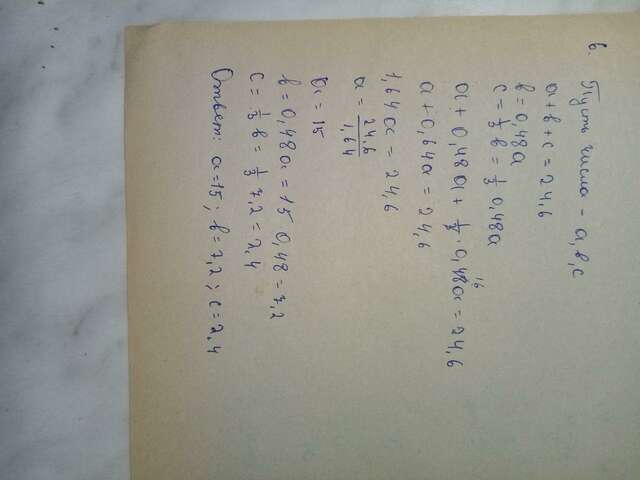 6. Пусть числа - a, b, c
a + b + c = 24,6
b = 0,48a
c = 1/3 b = 1/3 0,48a
a + 0,48a + 1/3 · 0,48a = 24,6
16
a + 0,64a = 24,6
1,64a = 24,6
a = 24,6/1,64
a = 15
b = 0,48a = 15 0,48 = 7,2
c = 1/3 b = 1/3 7,2 = 2,4
Ответ: a = 15; b = 7,2; c = 2,4